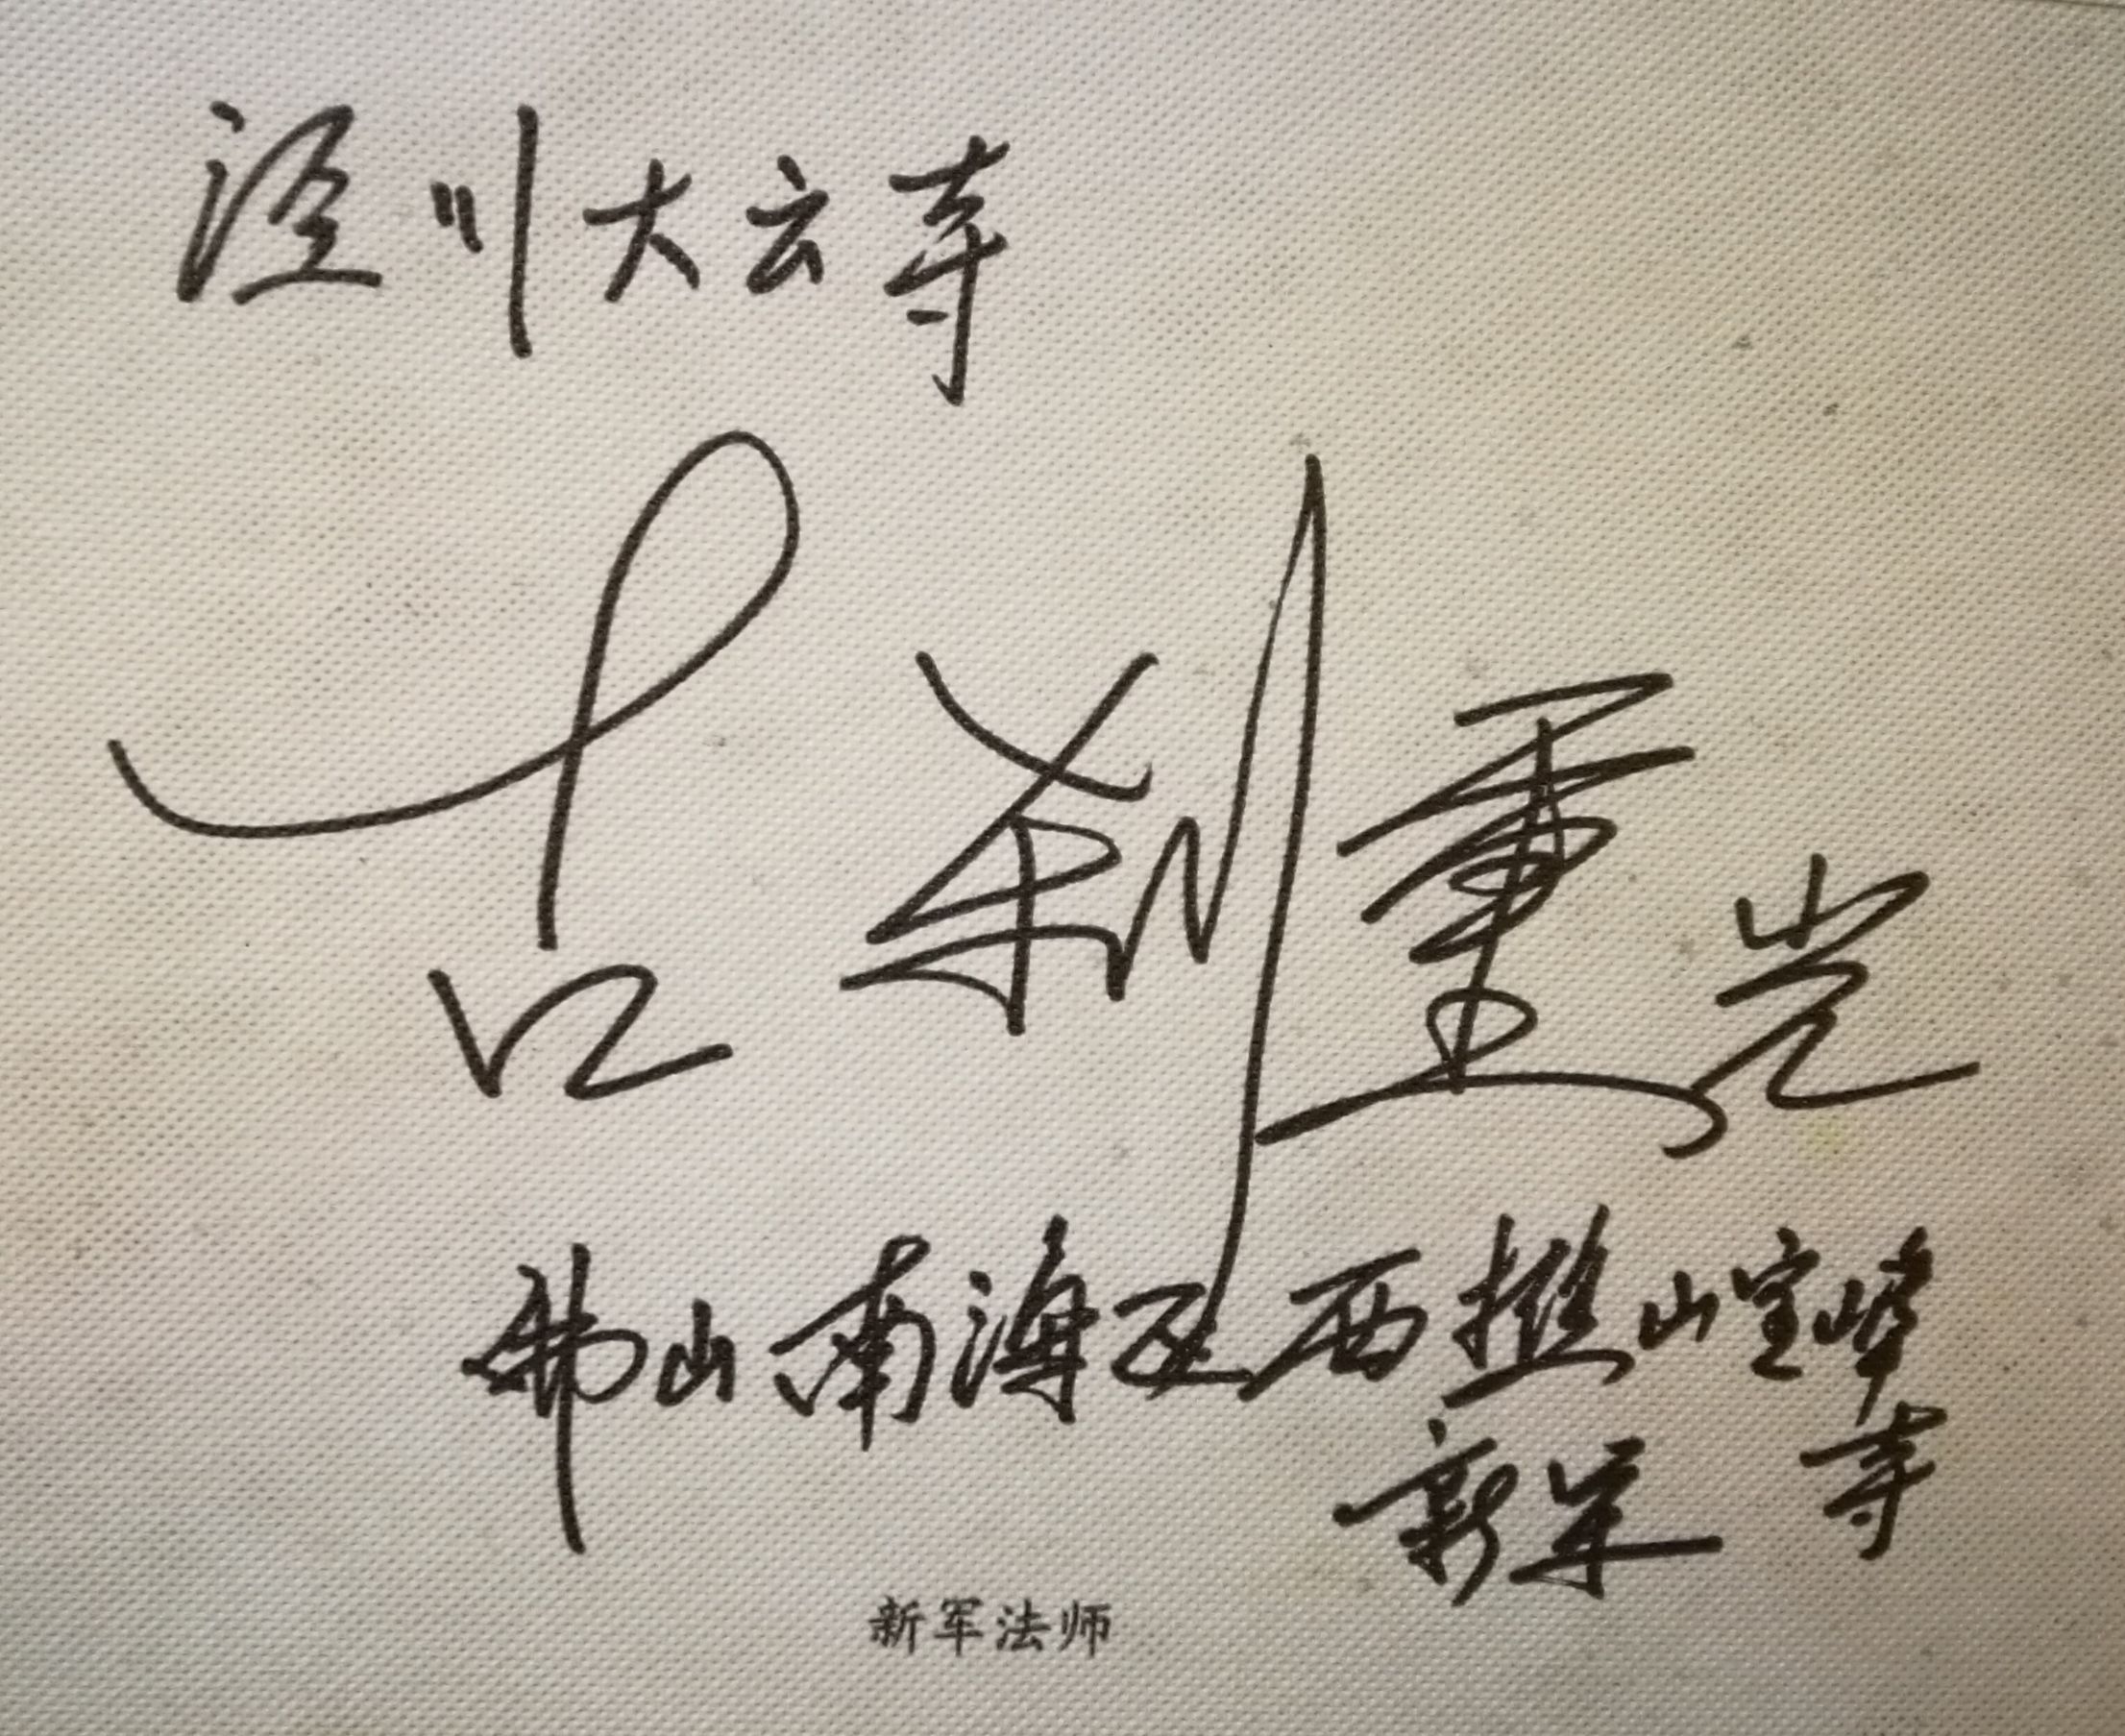 泾川大云寺
古刹重光
佛山南海区西樵山宝峰
寺
新军
新军法师